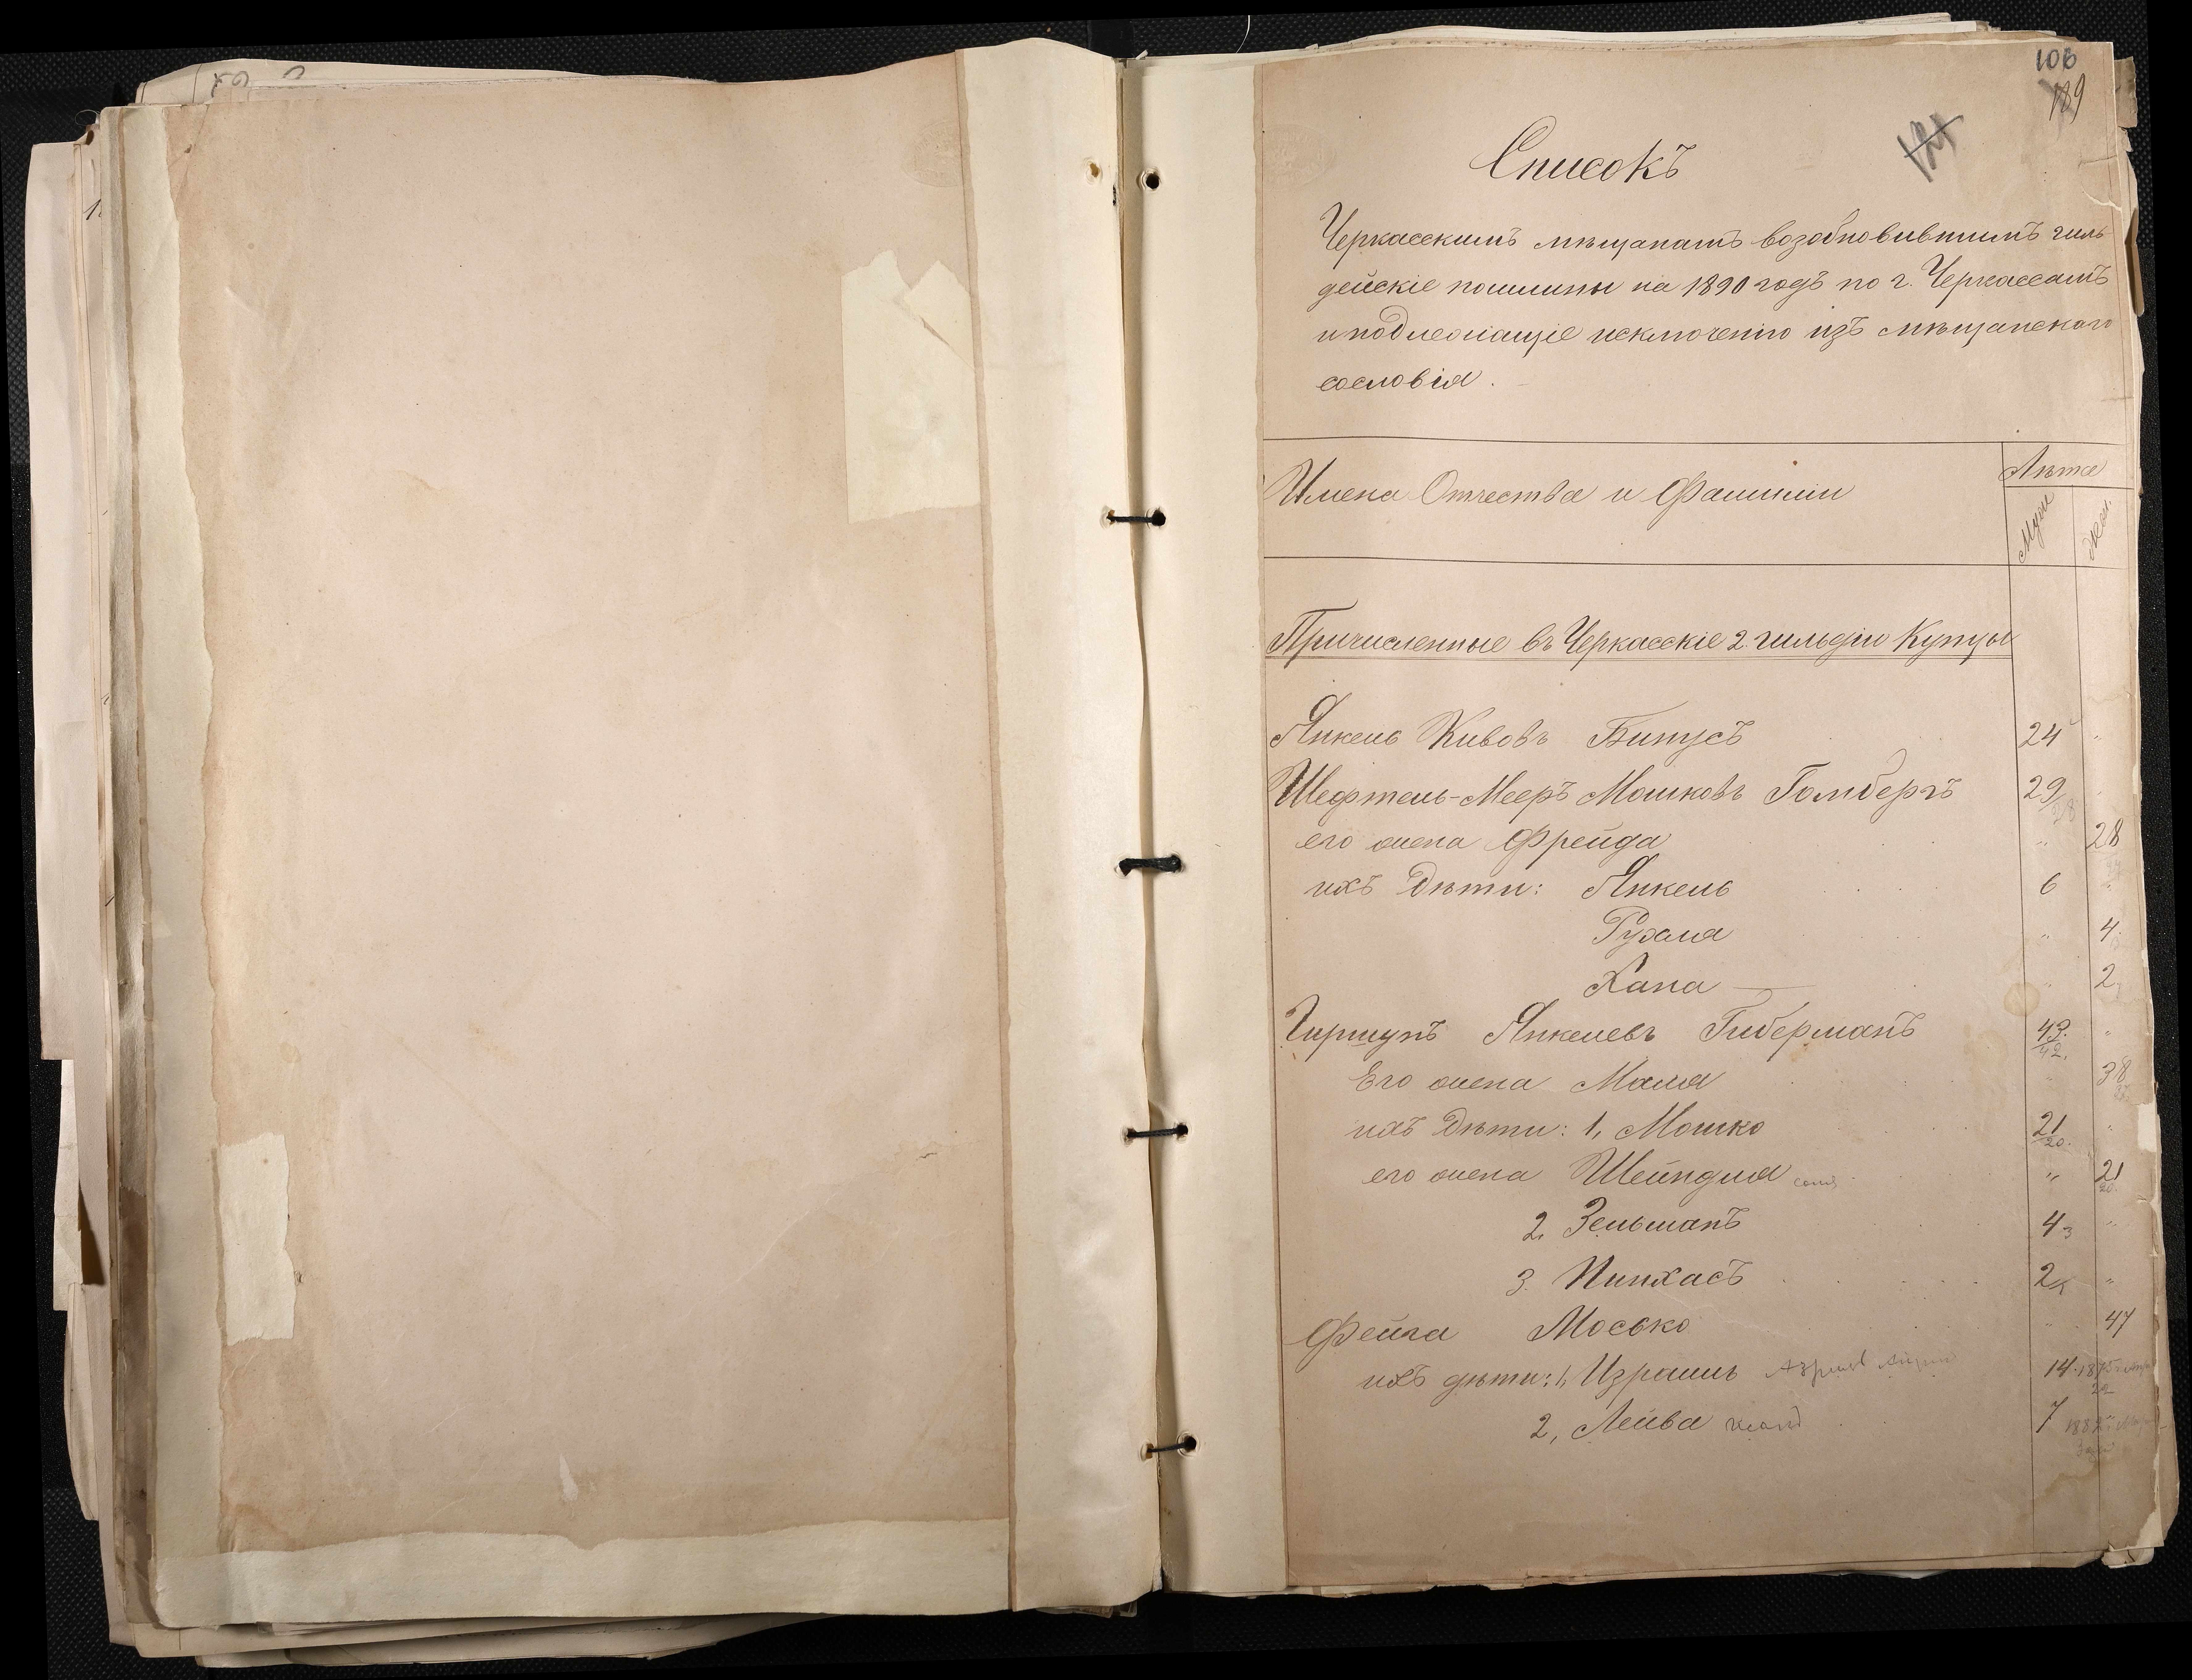 106
189
Списокъ
Черкасскимъ мѣщанамъ возобновившимъ гиль
дейскіе пошлины на 1890 годъ по г. Черкассамъ
и подлежащіе исключенію изъ мѣщанскаго
сословія.
Имена Отчества и Фамиліи
Лѣта
Муж Жен.
Причисленные въ Черкасскіе 2 гильдіи Купцы
Янкель Кивовъ Бинусъ 24 "
Шефтель-Мееръ Мошковъ Голбергъ 29
его жена Фрейда " 28
ихъ Дѣти: Янкель 6 "
Рухля " 4
Хана — " 2
Гиршунъ Янкелевъ Гиберманъ 43. "
42.
Его жена Маля " 38
ихъ Дѣти: 1, Мошко 21 "
20.
его жена Шейндля " 21
20.
2. Зельманъ 4 3 "
3. Пинхасъ 2 "
Фейга Мосько " 47
ихъ дѣти: 1, Израиль 14 1875
22
2, Лейва 7 188